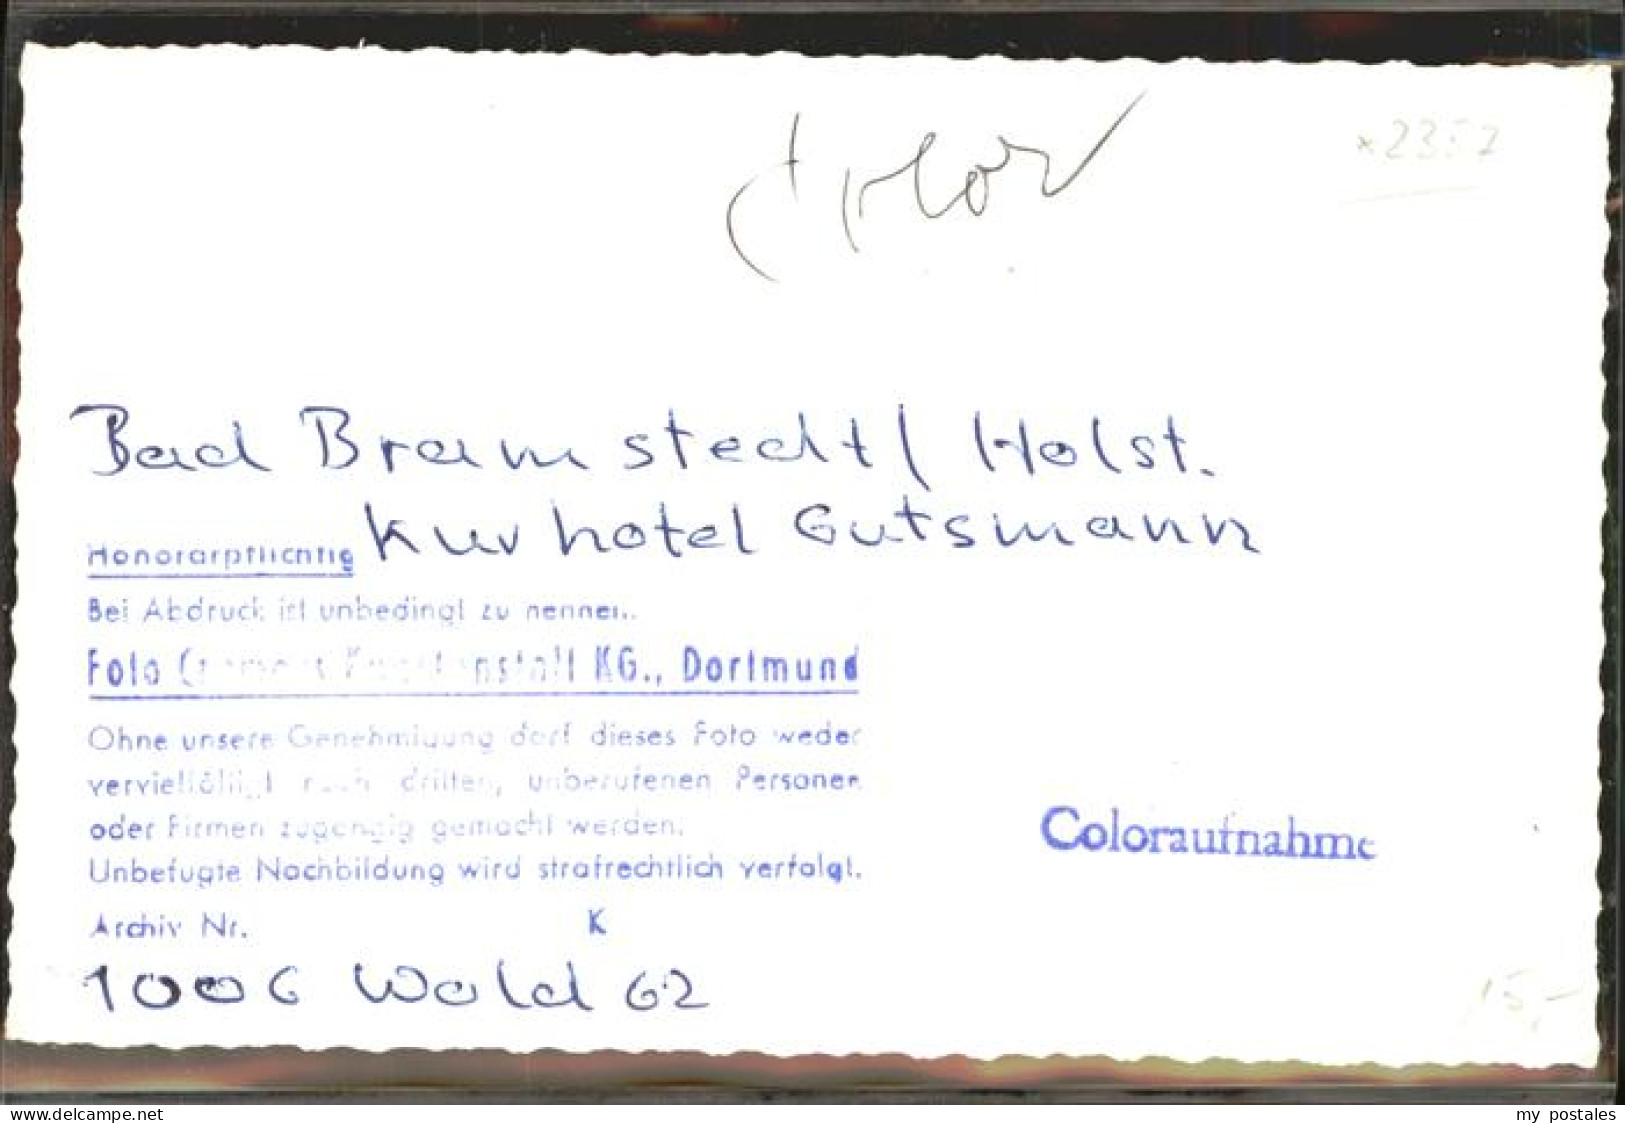 Color
*2357
Bad Bramstedt / Holst.
Kurhotel Gutsmann
Honorarpflichtig
Bei Abdruck ist unbedingt zu nennen:
Foto KG., Dortmund
Ohne unsere Genehmigung darf dieses Foto weder
vervielfältigt noch dritten, unberufenen Personen
oder Firmen zugängig gemacht werden.
Unbefugte Nachbildung wird strafrechtlich verfolgt.
Coloraufnahme
Archiv Nr. K
1006 Wald 62
15,-
www.delcampe.net
my postales